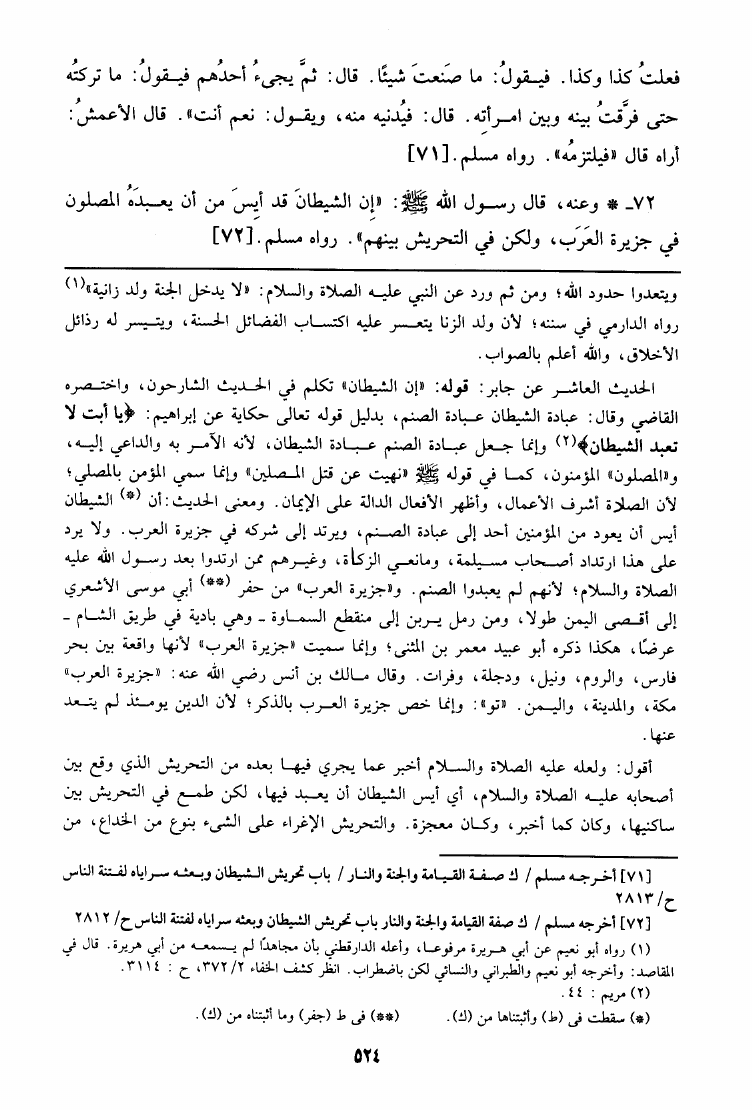 فعلتُ كذا وكذا. فيـقولُ: ما صَنعتَ شيئًا. قال: ثمَّ يجيءُ أحدُهم فيـقولُ: ما تركتُه
حتى فرَّقتُ بينه وبين امـرأتِه. قال: فيُدنيه منه، ويقـول: نعم أنت». قال الأعمشُ:
أراه قال «فيلتزمُه». رواه مسلم.[٧١]
٧٢ـ * وعنه، قال رسـول الله ﷺ: «إن الشيطانَ قد أيِسَ من أن يعـبدَهُ المصلون
في جزيرة العَرَب، ولكن في التحريش بينهم». رواه مسلم.[٧٢]
ويتعدوا حدود الله؛ ومن ثم ورد عن النبي عليـه الصلاة والسلام: «لا يدخل الجنة ولد زانية»(١)
رواه الدارمي في سننه؛ لأن ولد الزنا يتعـسر عليه اكتسـاب الفضائل الحسنة، ويتـيسر له رذائل
الأخلاق، والله أعلم بالصواب.
الحديث العاشـر عن جابر: قوله: «إن الشيطان» تكلم في الحـديث الشارحون، واختـصره
القاضي وقال: عبادة الشيطان عـبادة الصنم، بدليل قوله تعالى حكاية عن إبراهيم: ﴿يا أبت لا
تعبد الشيطان﴾(٢) وإنما جـعل عبـادة الصنم عـبـادة الشيطان، لأنه الآمـر به والداعي إليـه،
و«المصلون» المؤمنون، كمـا في قوله ﷺ «نهيت عن قتل المـصلين» وإنما سمي المؤمن بالمصلي؛
لأن الصلاة أشرف الأعمال، وأظهر الأفعال الدالة على الإيمان. ومعنى الحديث: أن (*) الشيطان
أيس أن يعود من المؤمنين أحد إلى عبادة الصـنم، ويرتد إلى شركه في جزيرة العرب. ولا يرد
على هذا ارتداد أصـحاب مـسيلمة، ومانعـي الزكاة، وغيـرهم ممن ارتدوا بعد رسـول الله عليه
الصلاة والسلام؛ لأنهم لم يعبدوا الصنم. و«جزيرة العرب» من حفر (**) أبي موسى الأشعري
إلى أقـصى اليمن طولا، ومن رمل يـبرين إلى منقطع السمـاوة ـ وهي بادية في طريق الشـام ـ
عرضًا، هكذا ذكره أبو عبيد معمر بن المثنى؛ وإنما سميت «جزيرة العرب» لأنها واقعة بين بحر
فارس، والروم، ونيل، ودجلة، وفرات. وقال مـالك بن أنس رضي الله عنه: «جزيرة العرب»
مكة، والمدينة، واليـمن. «تو»: وإنما خص جزيرة العـرب بالذكر؛ لأن الدين يومـئذ لم يتـعد
عنها.
أقول: ولعله عليه الصلاة والسـلام أخبر عما يجري فيهـا بعده من التحريش الذي وقع بين
أصحابه عليـه الصلاة والسلام، أي أيس الشيطان أن يعـبد فيها، لكن طمـع في التحريش بين
ساكنيها، وكان كما أخبر، وكـان معجزة. والتحريش الإغراء على الشيء بنوع من الخداع، من
[٧١] أخـرجه مسلم / ك صـفـة القيـامة والجنة والنـار / باب تحريش الشيطان وبعثه سـراياه لفـتنة الناس
ح/ ٢٨١٣
[٧٢] أخرجه مسلم / ك صفة القيامة والجنة والنار باب تحريش الشيطان وبعثه سراياه لفتنة الناس ح/ ٢٨١٢
(١) رواه أبو نعيم عن أبي هـريرة مرفوعـا، وأعله الدارقطني بأن مجاهدًا لم يـسمعـه من أبي هريرة. قال في
المقاصد: وأخرجه أبو نعيم والطبراني والنسائي لكن باضطراب. انظر كشف الخفاء ٣٧٢/٢، ح : ٣١١٤.
(٢) مريم : ٤٤.
(*) سقطت في (ط) وأثبتناها من (ك). (**) في ط (جفر) وما أثبتناه من (ك).
٥٢٤